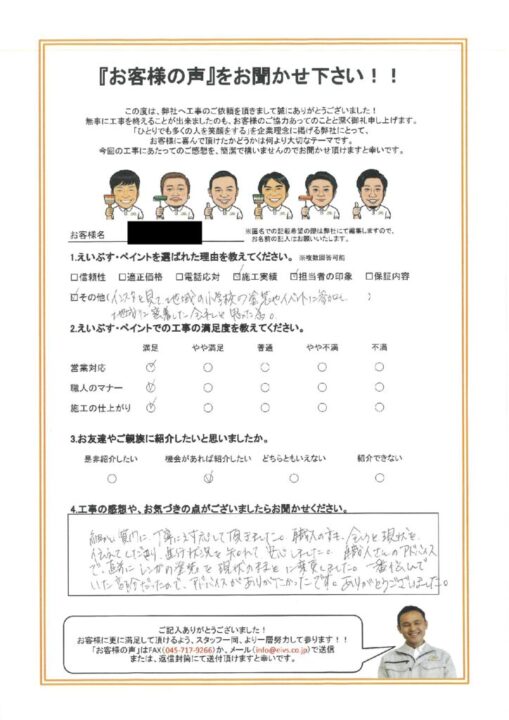 『お客様の声』をお聞かせ下さい！！
この度は、弊社へ工事のご依頼を頂きまして誠にありがとうございました！
無事に工事を終えることが出来ましたのも、お客様のご協力あってのことと深く御礼申し上げます。
「ひとりでも多くの人を笑顔をする」を企業理念に掲げる弊社にとって、
お客様に喜んで頂けたかどうかは何より大切なテーマです。
今回の工事にあたってのご感想を、簡潔で構いませんのでお聞かせ頂けますと幸いです。
お客様名
※匿名での記載希望の際は弊社にて編集しますので、
お名前の記入はお願いいたします。
1.えいぶす・ペイントを選ばれた理由を教えてください。 ※複数回答可能
□信頼性 □適正価格 □電話応対 ☑施工実績 ☑担当者の印象 □保証内容
☑その他(インスタを見て、地域の小学校の塗装やイベントに参加し、 )
地域に密着した会社と思った為。
2.えいぶす・ペイントでの工事の満足度を教えてください。
満足 やや満足 普通 やや不満 不満
営業対応
職人のマナー
施工の仕上がり
3.お友達やご親族に紹介したいと思いましたか。
是非紹介したい 機会があれば紹介したい どちらともいえない 紹介できない
4.工事の感想や、お気づきの点がございましたらお聞かせください。
細かい質問に、丁寧に対応して頂きました。職人の方も、現状を、
伝えて下さり、進行状況を知れて安心しました。職人さんのアドバイス
で、直前にレンガの塗装を現状のままに変更しました。一番悩んで
いた部分だったので、アドバイスがありがたかったです。ありがとうございました。
ご記入ありがとうございました！
お客様に更に満足して頂けるよう、スタッフ一同、より一層努力して参ります！！
「お客様の声」はFAX(045-717-9266)か、メール(info@eivs.co.jp)で送信
または、返信封筒にて送付頂けますと幸いです。